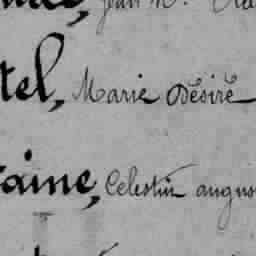 tel, Marie Désiré
aine, Celestin augus